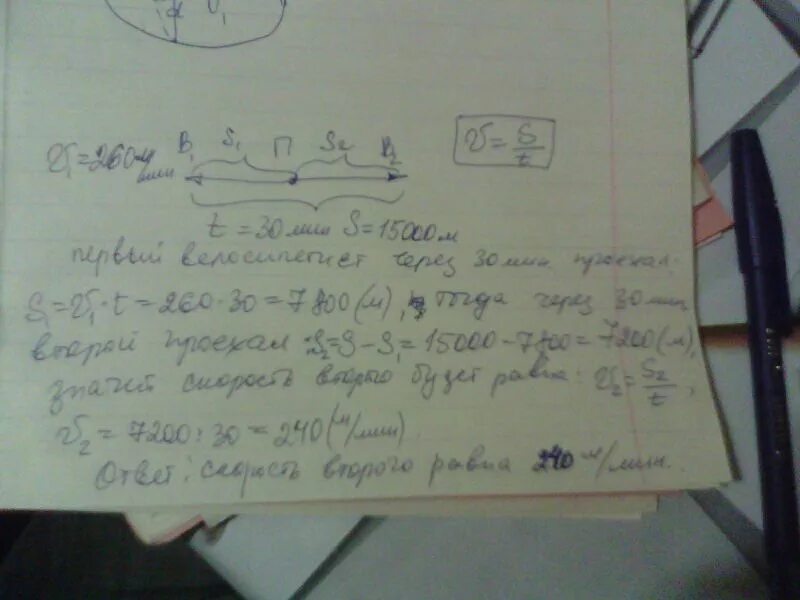 α V₁
V₁=260 м/мин B₁ S₁ П S₂ B₂
V = S/t
t = 30 мин S = 15000 м
первый велосипетист через 30 мин. проехал:
S₁ = V₁ · t = 260 · 30 = 7800 (м), тогда через 30 мин
второй проехал S₂ = S - S₁ = 15000 - 7800 = 7200 (м),
значит скорость второго будет равна: V₂ = S₂/t,
V₂ = 7200 : 30 = 240 (м/мин).
Ответ: скорость второго равна 240 м/мин.